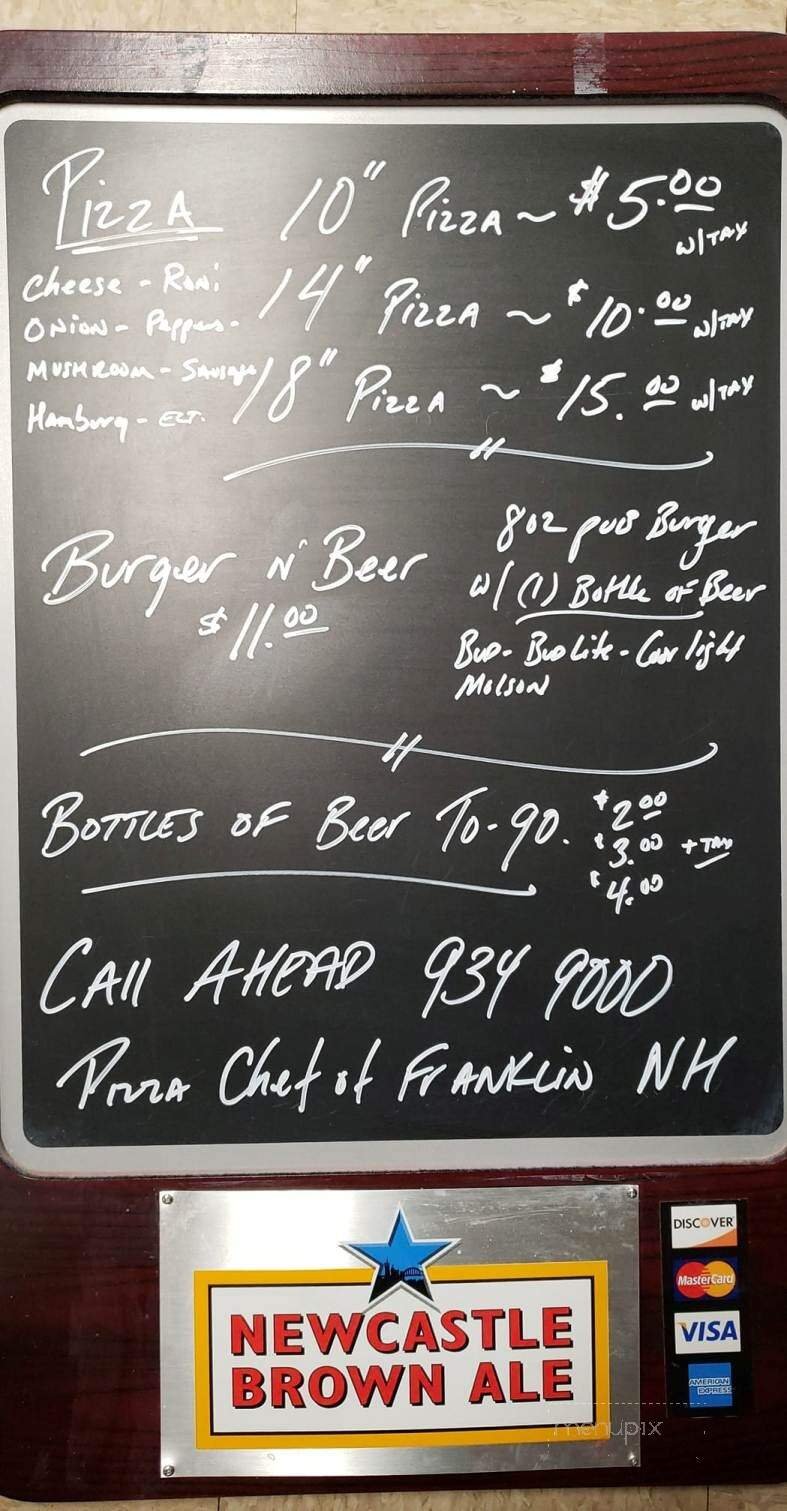 Pizza 10" Pizza ~ $5.00 w/TAX
Cheese - Roni 14" Pizza ~ $10.00 w/TAX
Onion - Peppers -
Mushroom - Sausage 18" Pizza ~ $15.00 w/TAX
Hamburg - ECT.
Burger N' Beer
$11.00
8oz pub Burger
w/ (1) Bottle of Beer
Bud - Bud Lite - Coor light
Molson
Bottles of Beer To-go. $2.00
$3.00 + TAX
$4.00
Call Ahead 934 9000
Pizza Chef of Franklin NH
NEWCASTLE
BROWN ALE
DISCOVER
MasterCard
VISA
AMERICAN EXPRESS
menupix